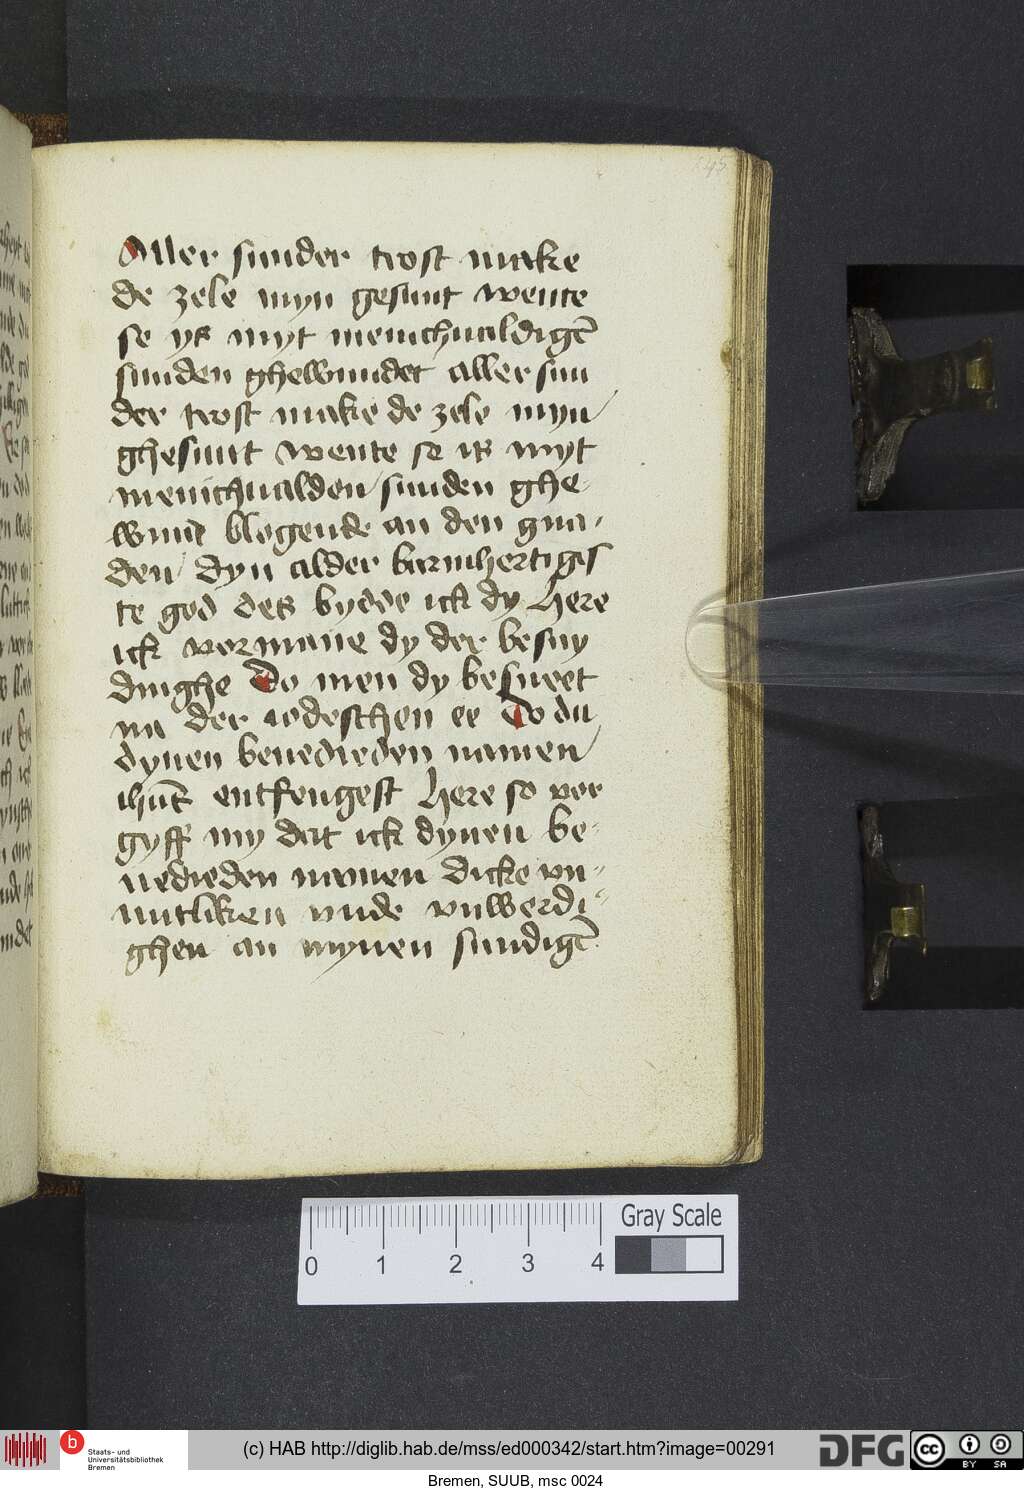 145
Aller sunder trost make
de zele myn gesunt wente
se ys myt menichualdigē
sunden ghewundet aller sun
der trost make de zele myn
ghesunt wente se is myt
menichualden sunden ghe-
wunt blogende an den gna-
den dyn alder barmhertiges
te god des bydde ick dy here
ick vormane dy der besny
dinghe do men dy besneet
na der iodeschen ee do du
dynen benedieden namen
ihūs entfengest here so vor
gyff my dat ick dynen be-
nedieden namen dicke vn-
nutliken vnde vnwerdi-
ghen an mynen sundigē
0 1 2 3 4
Gray Scale
b
Staats- und
Universitätsbibliothek
Bremen
(c) HAB http://diglib.hab.de/mss/ed000342/start.htm?image=00291
DFG
cc
BY SA
Bremen, SUUB, msc 0024